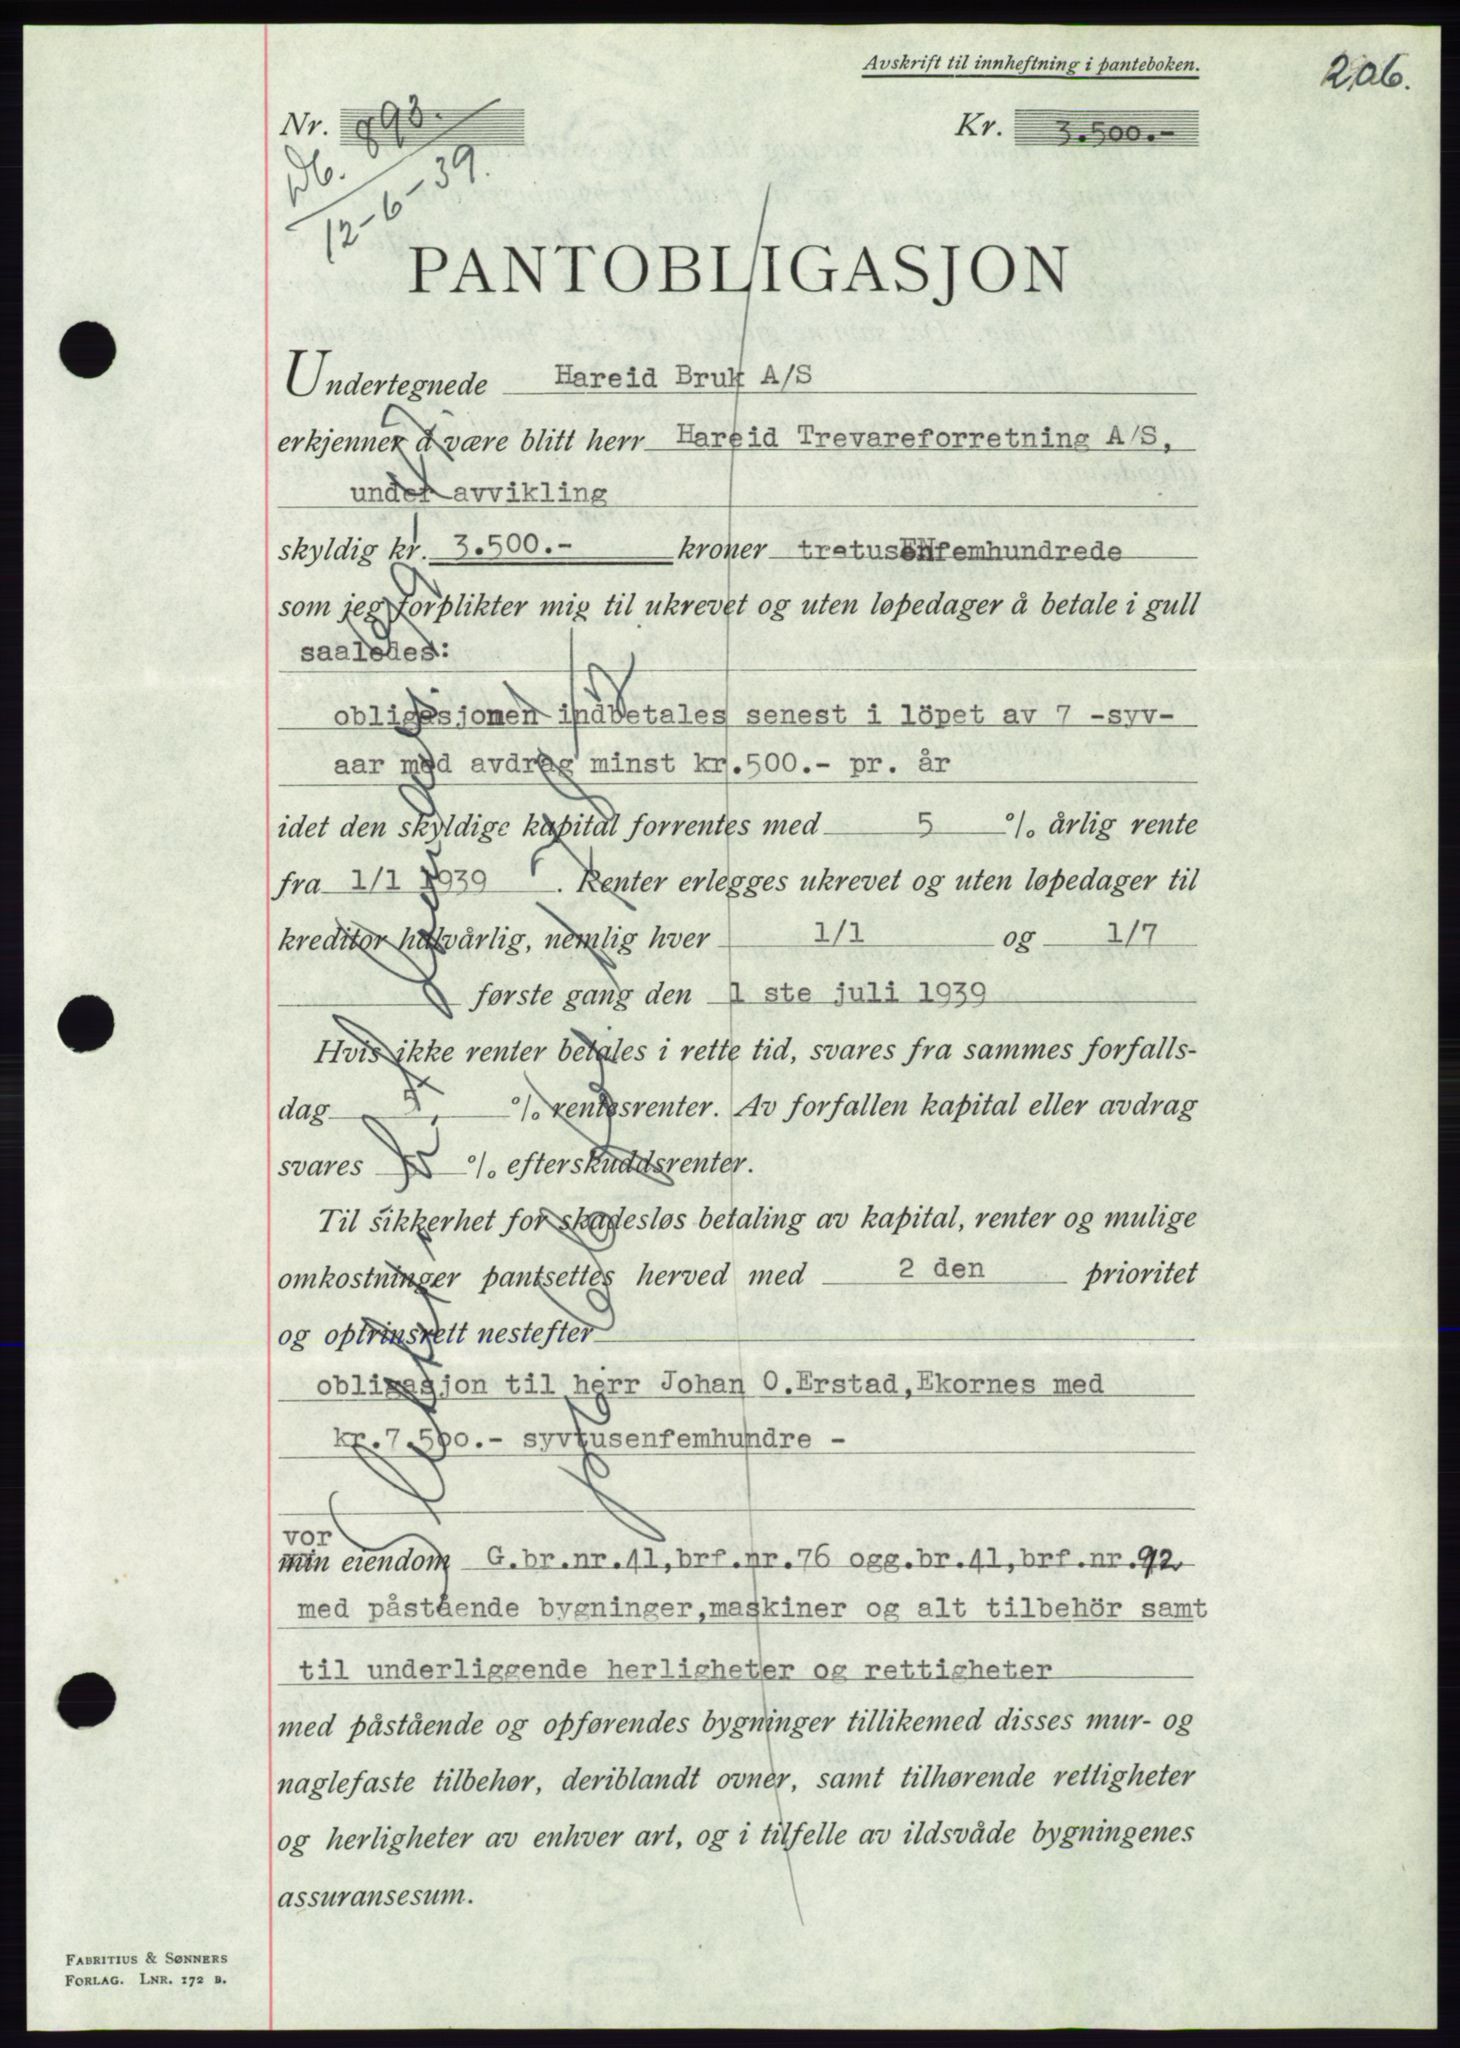 Avskrift til innheftning i panteboken.
206.
Nr. 893.
Kr. 3.500.-
Db.
12-6-39.
PANTOBLIGASJON
Undertegnede Hareid Bruk A/S
erkjenner å være blitt herr Hareid Trevareforretning A/S,
under avvikling
skyldig kr. 3.500.- kroner tretusENfemhundrede
som jeg forplikter mig til ukrevet og uten løpedager å betale i gull
saaledes:
obligasjonen indbetales senest i löpet av 7 -syv-
aar med avdrag minst kr.500.- pr. år
idet den skyldige kapital forrentes med 5 % årlig rente
fra 1/1 1939. Renter erlegges ukrevet og uten løpedager til
kreditor halvårlig, nemlig hver 1/1 og 1/7
første gang den 1 ste juli 1939
Hvis ikke renter betales i rette tid, svares fra sammes forfalls-
dag 5 % rentesrenter. Av forfallen kapital eller avdrag
svares % efterskuddsrenter.
Til sikkerhet for skadesløs betaling av kapital, renter og mulige
omkostninger pantsettes herved med 2 den prioritet
og optrinsrett nestefter
obligasjon til herr Johan O.Erstad, Ekornes med
kr.7.500.- syvtusenfemhundre -
vor
min eiendom G.br.nr.41, brf.nr.76 ogg.br.41, brf.nr.92
med påstående bygninger, maskiner og alt tilbehör samt
til underliggende herligheter og rettigheter
med påstående og opførendes bygninger tillikemed disses mur- og
naglefaste tilbehør, deriblandt ovner, samt tilhørende rettigheter
og herligheter av enhver art, og i tilfelle av ildsvåde bygningenes
assuransesum.
FABRITIUS & SØNNERS
FORLAG. LNR. 172 B.